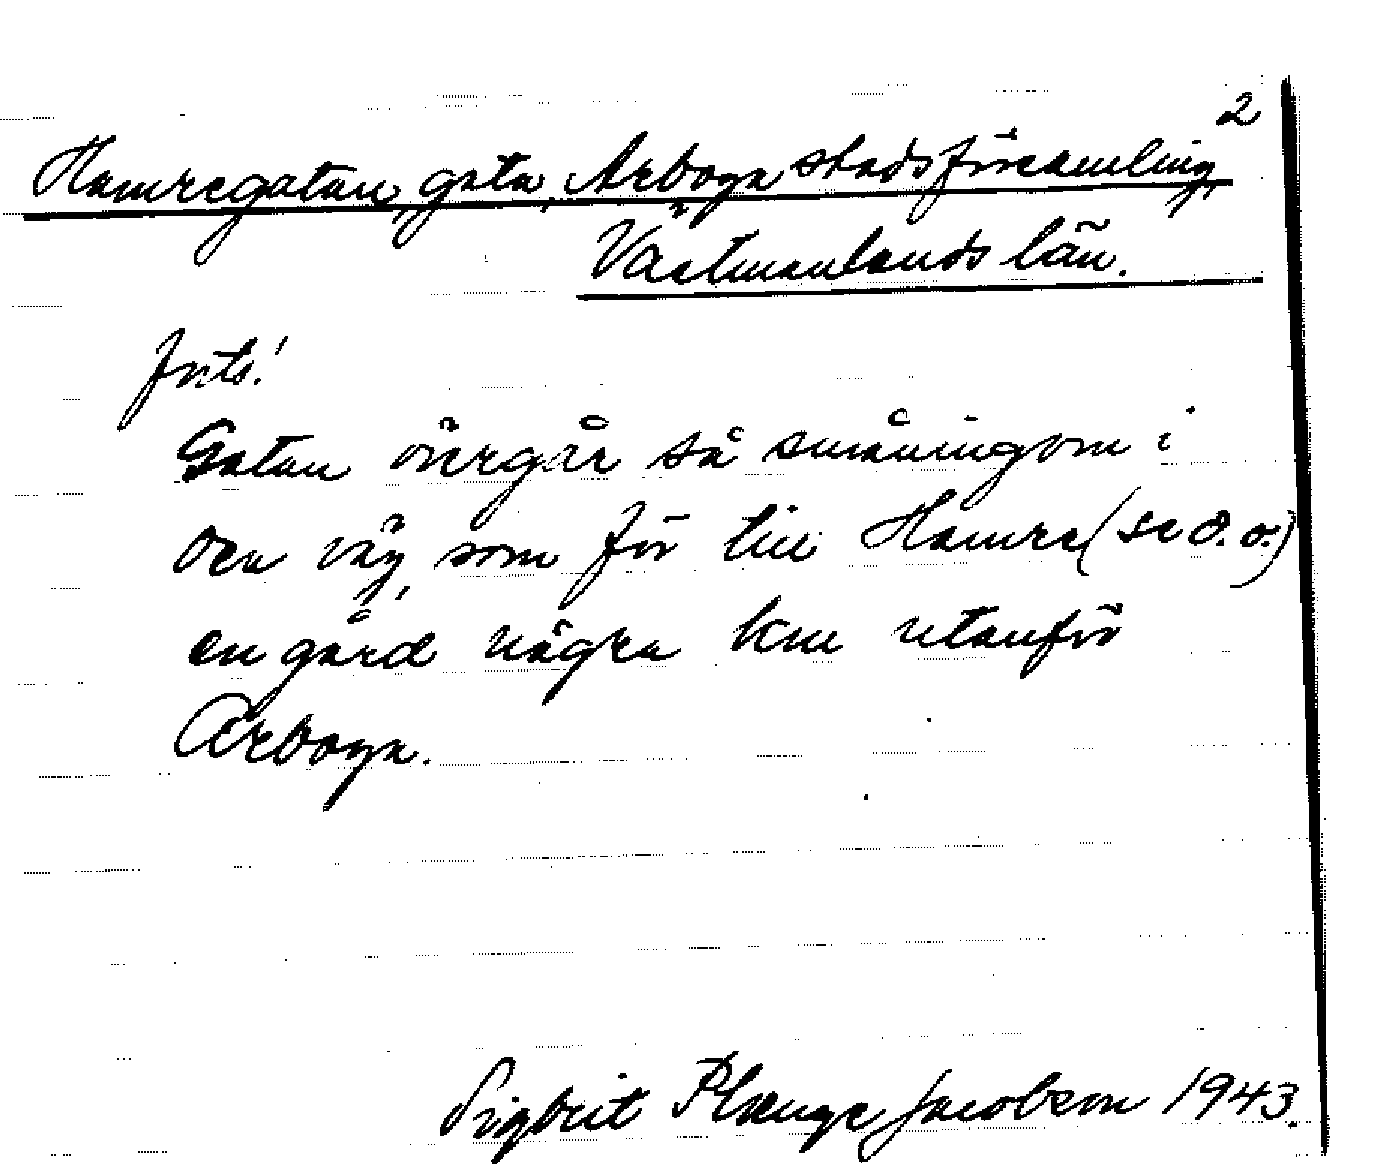 2
Hamregatan, gata, Arboga stadsförsamling,
Västmanlands län.
Jnts!
Gatan övergår så småningom i
den väg, som för till Hamre (se d. o.)
en gård några km utanför
Arboga.
Sigbrit Plænge Jacobson 1943.